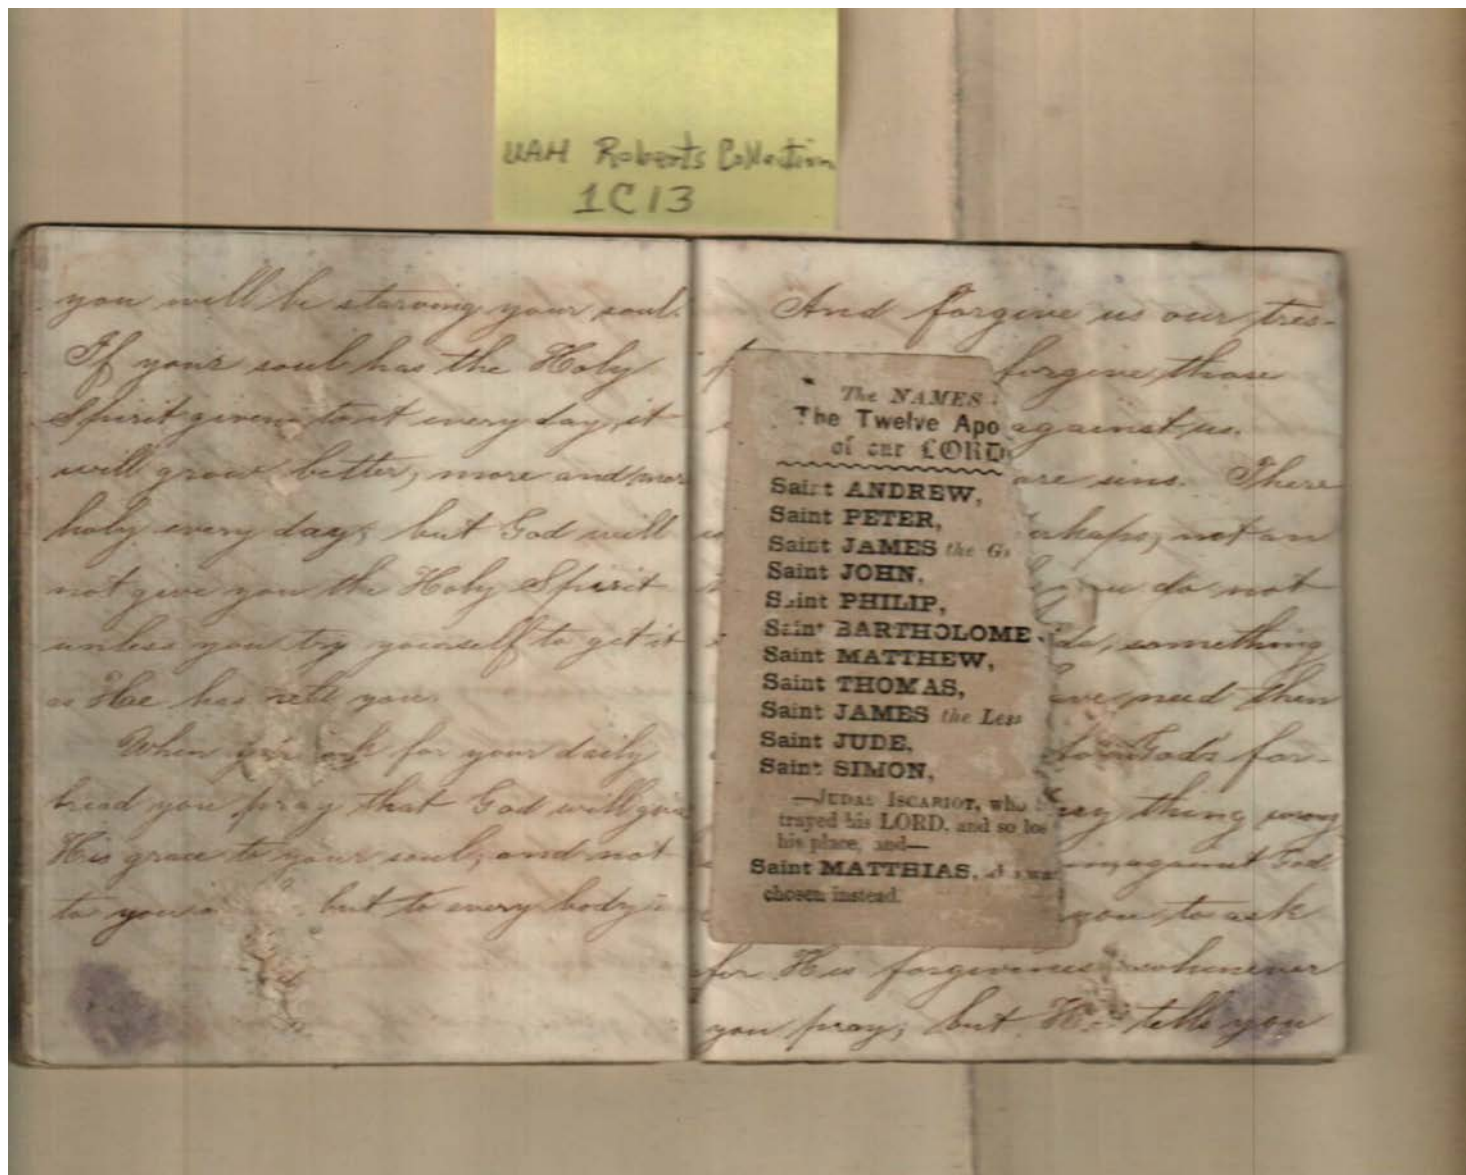 UAH Roberts Collection
1C13
you will be starving your soul.
If your soul has the Holy
Spirit given to it every day, it
will grow better, more and more
holy every day; but God will
not give you the Holy Spirit
unless you try yourself to get it
as He has tell you.
When you ask for your daily
bread you pray that God will give
His grace to your soul, and not
to you but to every body
And forgive us our tres-
forgive those
against us.
are sins. There
not an
you do not
do, something
have need then
God's for-
any thing wrong
against God.
you to ask
for His forgiveness whenever
you pray; but He tells you
The NAMES
The Twelve Apo
of our LORD
Saint ANDREW,
Saint PETER,
Saint JAMES the G
Saint JOHN,
Saint PHILIP,
Saint BARTHOLOME
Saint MATTHEW,
Saint THOMAS,
Saint JAMES the Less
Saint JUDE,
Saint SIMON,
—JUDAS ISCARIOT, who
trayed his LORD, and so los
his place, and—
Saint MATTHIAS, was
chosen instead.